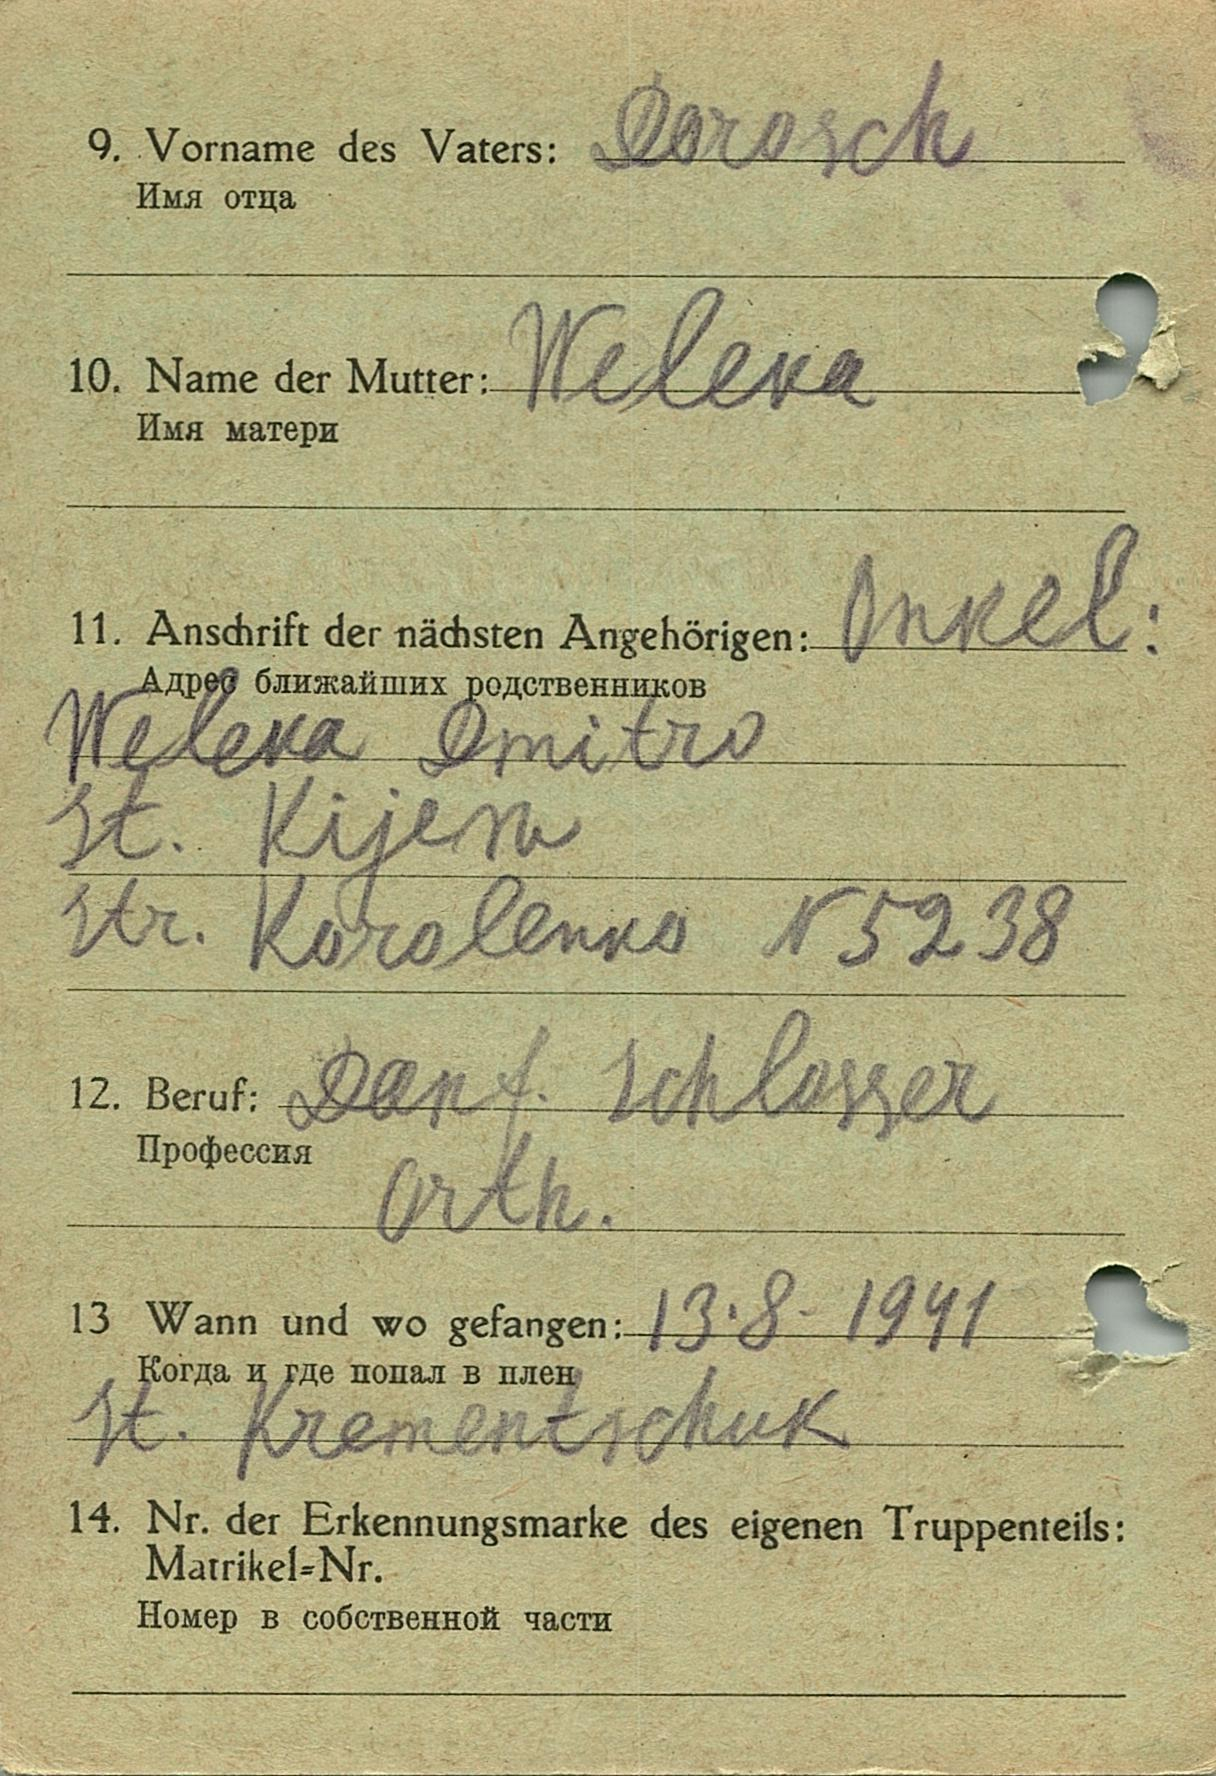 9. Vorname des Vaters: Dorosch
Имя отца
10. Name der Mutter: Welena
Имя матери
11. Anschrift der nächsten Angehörigen: Onkel:
Адрес ближайших родственников
Welena Dmitro
St. Kijew
Str. Korolenko N 52 38
12. Beruf: Dampf. Schlosser
Профессия
Orth.
13 Wann und wo gefangen: 13.8-1941
Когда и где попал в плен
St. Krementschuk
14. Nr. der Erkennungsmarke des eigenen Truppenteils:
Matrikel=Nr.
Номер в собственной части